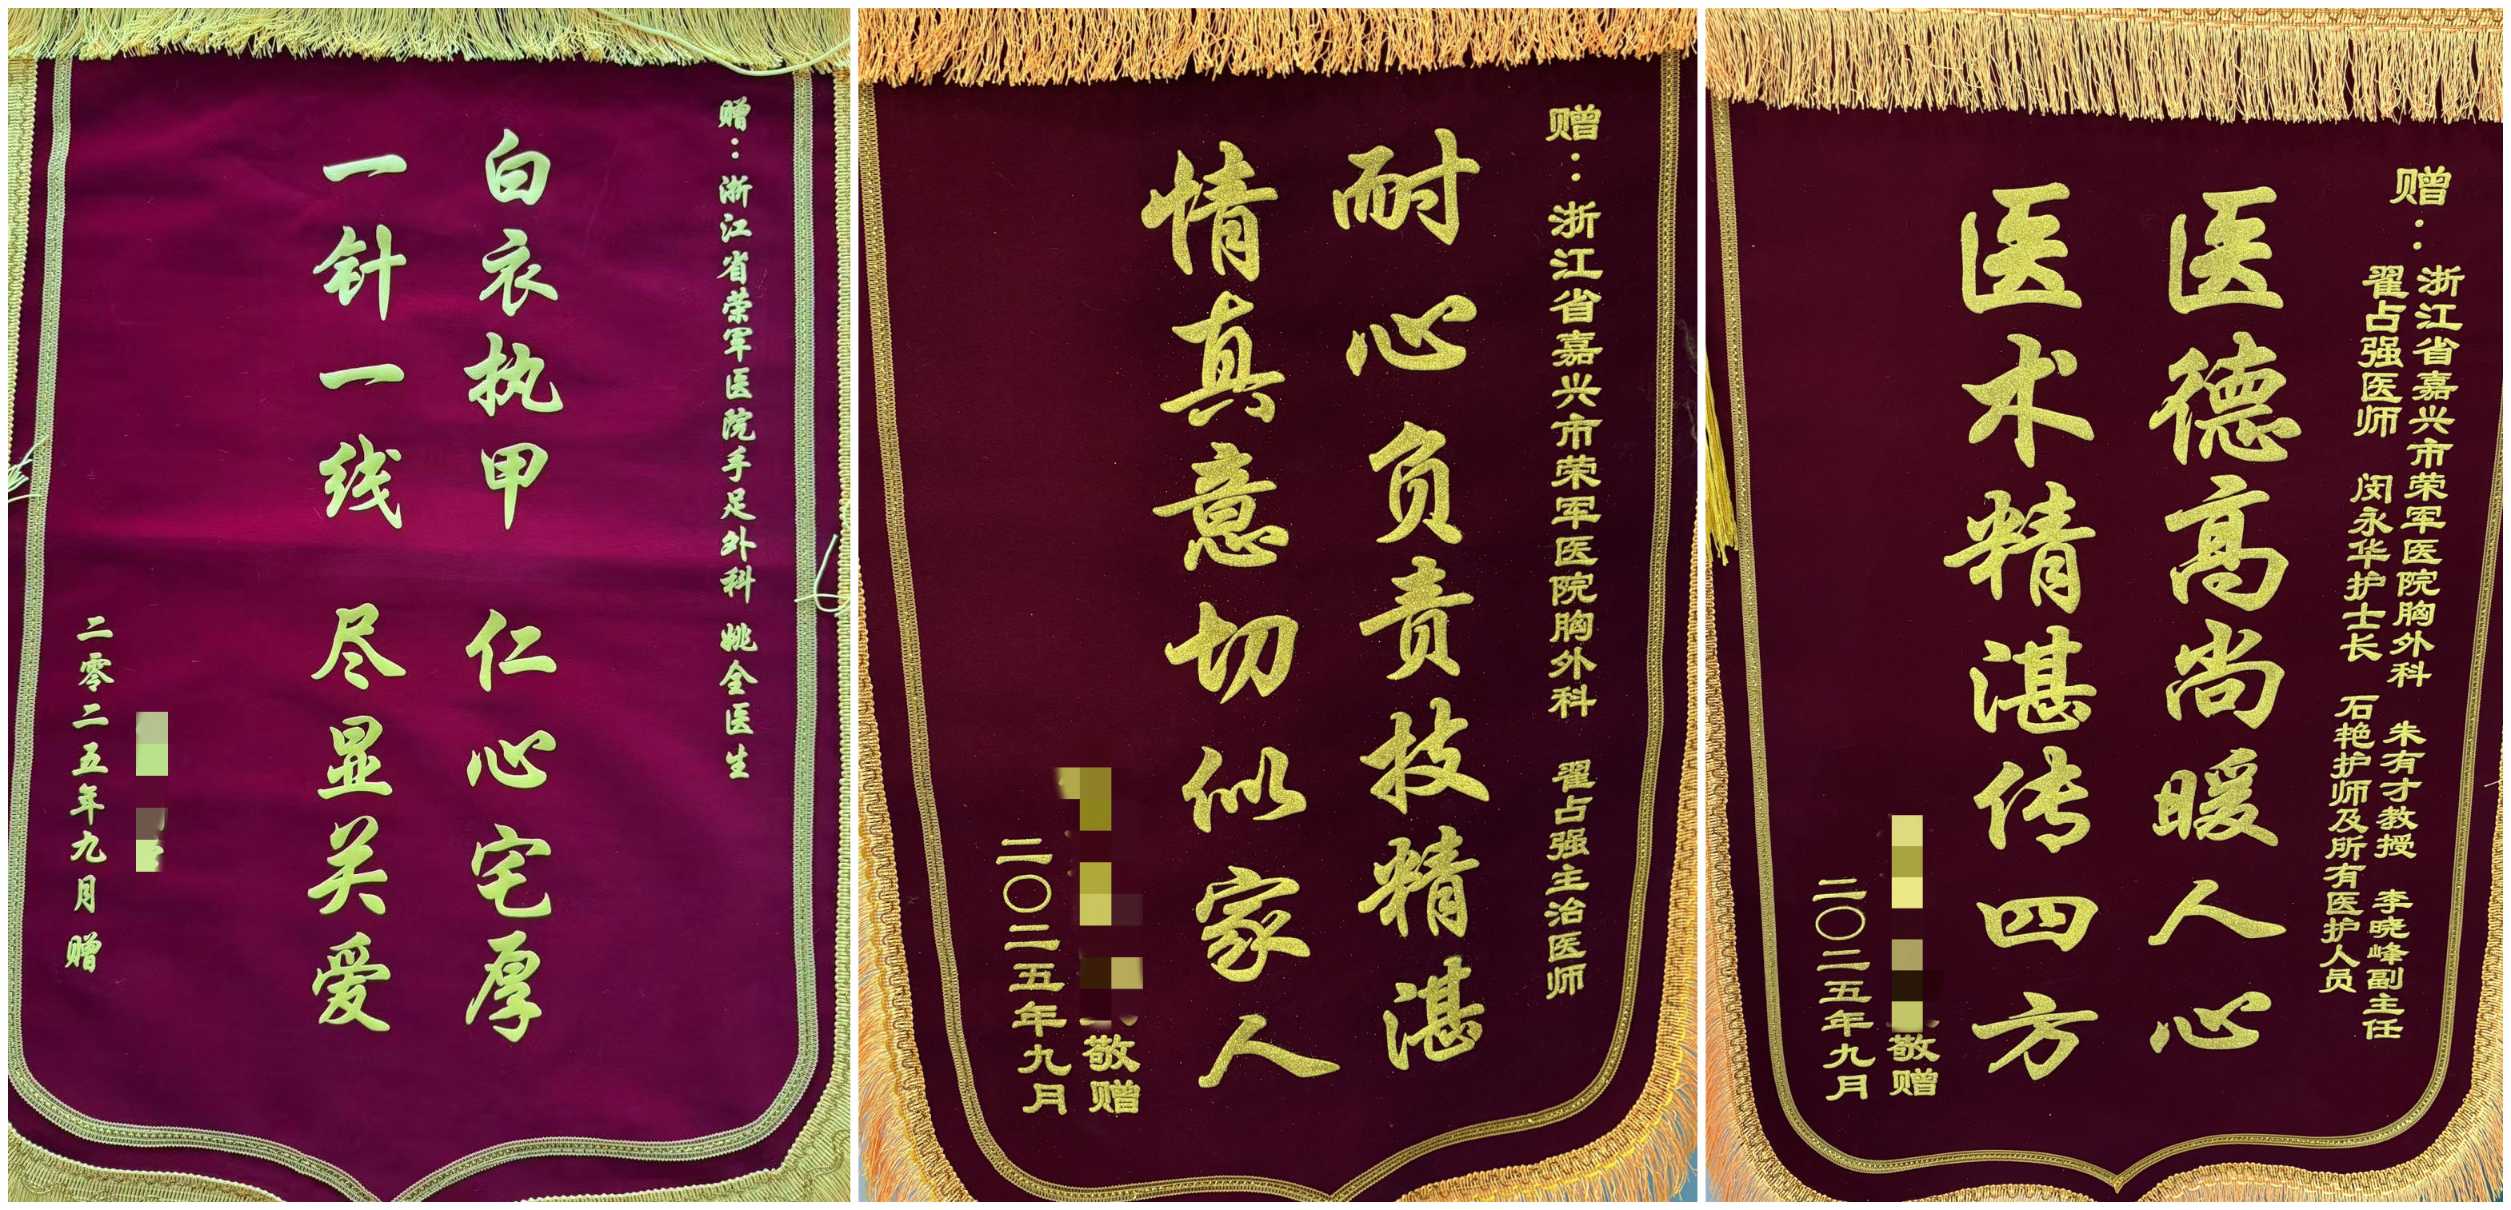 赠：浙江省荣军医院手足外科 姚全医生
白衣执甲 仁心宅厚
一针一线 尽显关爱
二零二五年九月 赠
赠：浙江省嘉兴市荣军医院胸外科 翟占强主治医师
耐心负责技精湛
情真意切似家人
敬赠
二〇二五年九月
赠：浙江省嘉兴市荣军医院胸外科 朱有才教授 李晓峰副主任
翟占强医师 闵永华护士长 石艳护师及所有医护人员
医德高尚暖人心
医术精湛传四方
敬赠
二〇二五年九月